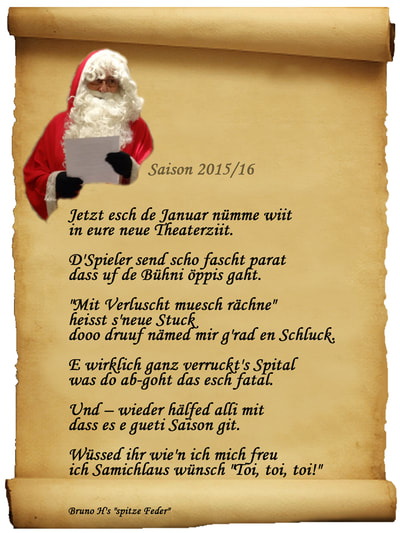 Saison 2015/16
Jetzt esch de Januar nümme wiit
in eure neue Theaterziit.
D'Spieler send scho fascht parat
dass uf de Bühni öppis gaht.
"Mit Verluscht muesch rächne"
heisst s'neue Stuck
dooo druuf nämed mir g'rad en Schluck.
E wirklich ganz verruckt's Spital
was do ab-goht das esch fatal.
Und – wieder hälfed alli mit
dass es e gueti Saison git.
Wüssed ihr wie'n ich mich freu
ich Samichlaus wünsch "Toi, toi, toi!"
Bruno H's "spitze Feder"